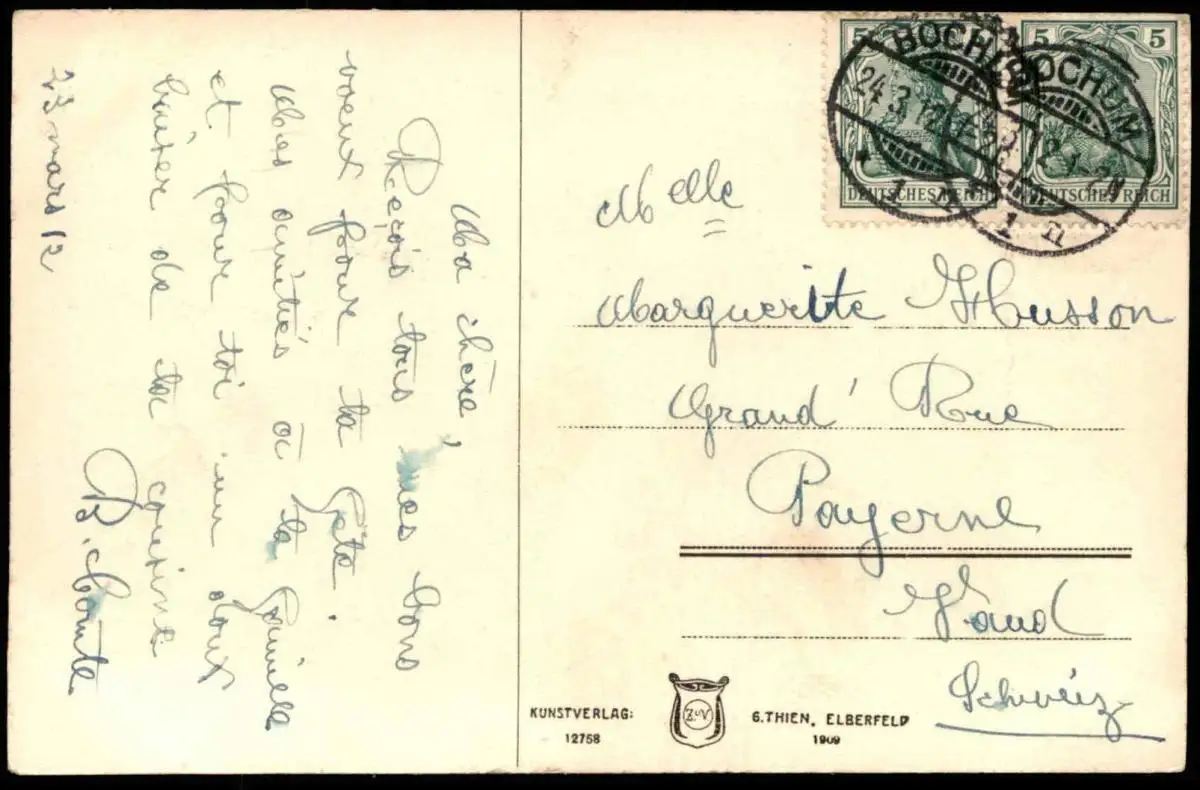 Ma chère,
Reçois tous mes bons
voeux pour ta fête.
Mes amitiés à ta famille
et pour toi un doux
baiser de ta cousine
B.
23 mars 12
5
5
BOCHUM
24.3.12
DEUTSCHES REICH
BOCHUM
DEUTSCHES REICH
Melle
Marguerite Husson
Grand' Rue
Payerne
Vaud
Schweiz
KUNSTVERLAG:
12758
Z.u.V
G. THIEN, ELBERFELD
1909